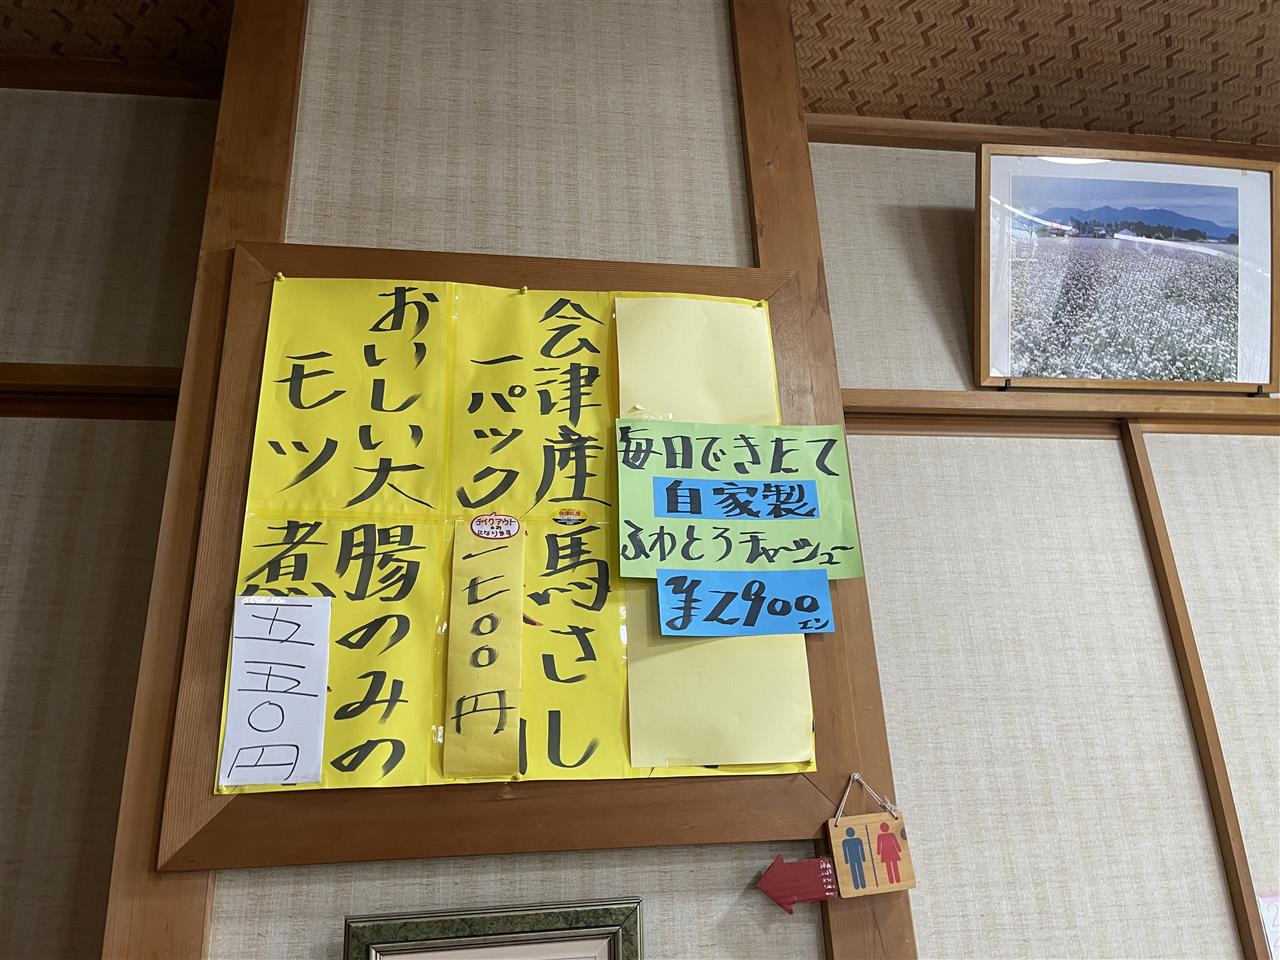 毎日できたて
自家製
ふわとろチャーシュー
¥2900
エン
会津産馬さし
一パック
テイクアウト
のみ
になります
一七〇〇円
おいしい大腸のみの
モツ煮
五五〇円